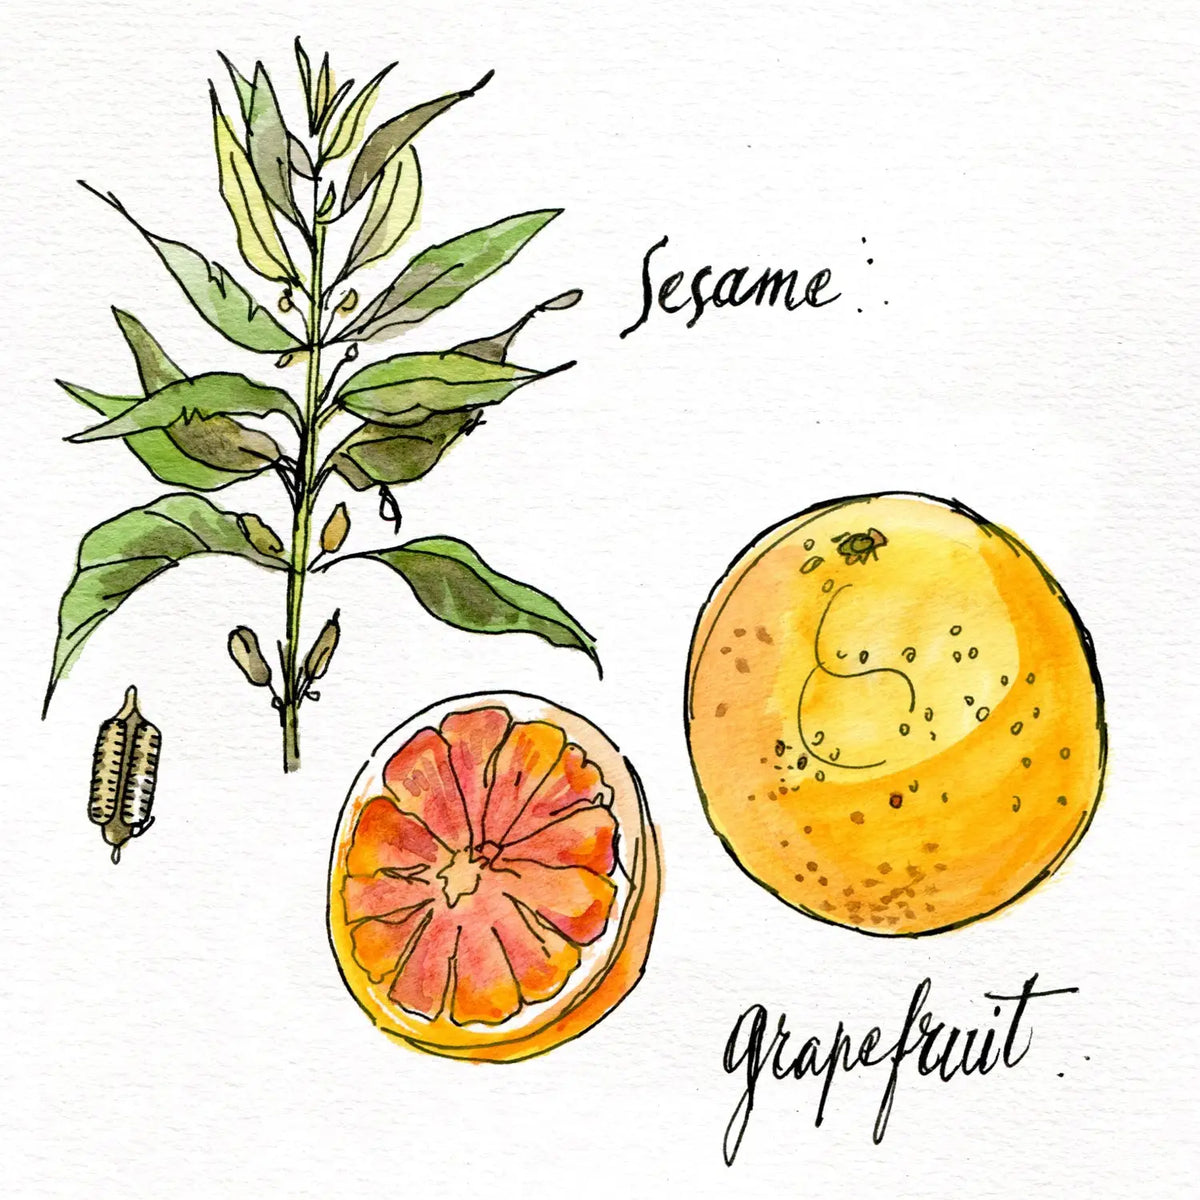 Sesame :
grapefruit .